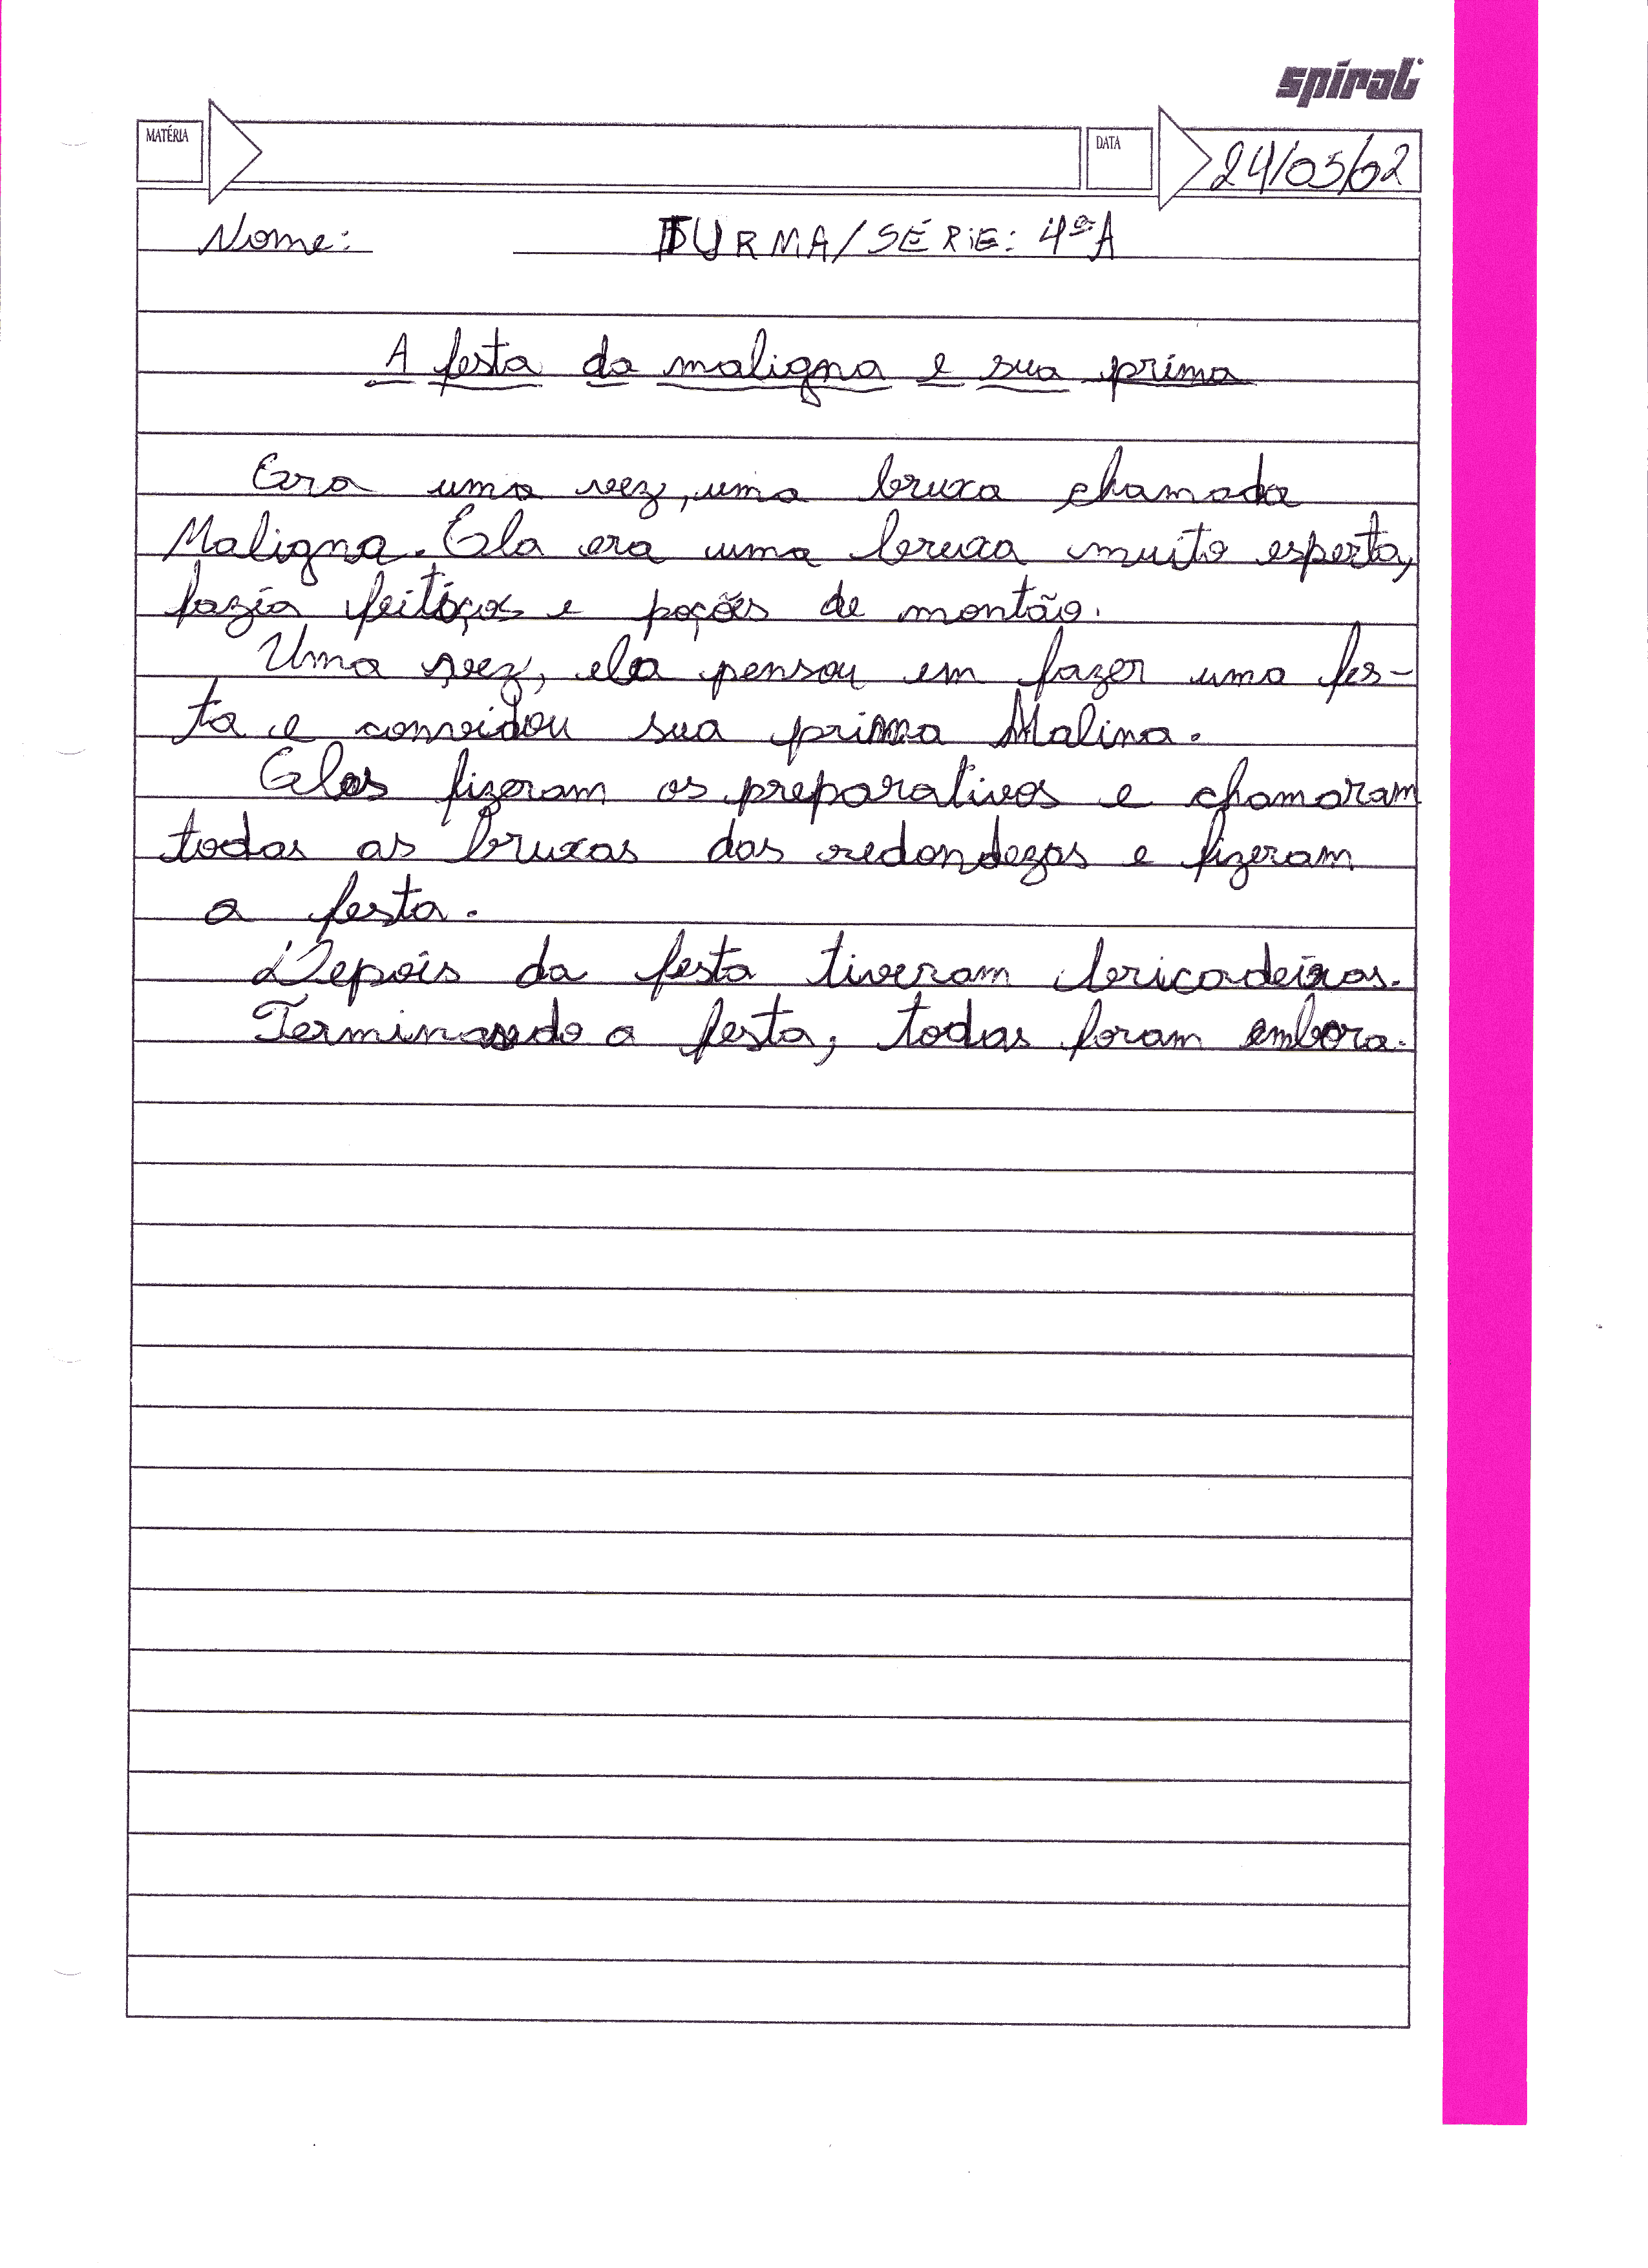 spiral
MATÉRIA DATA 24/05/02
Nome: TURMA/SÉRIE: 4ª A
A festa da maligna e sua prima
Era uma vez, uma bruxa chamada
Maligna. Ela era uma bruxa muito esperta,
fazia feitiços e poções de montão.
Uma vez, ela pensou em fazer uma fes-
ta e convidou sua prima Malina.
Elas fizeram os preparativos e chamaram
todas as bruxas das redondezas e fizeram
a festa.
Depois da festa tiveram bricadeiras.
Terminando a festa, todas foram embora.